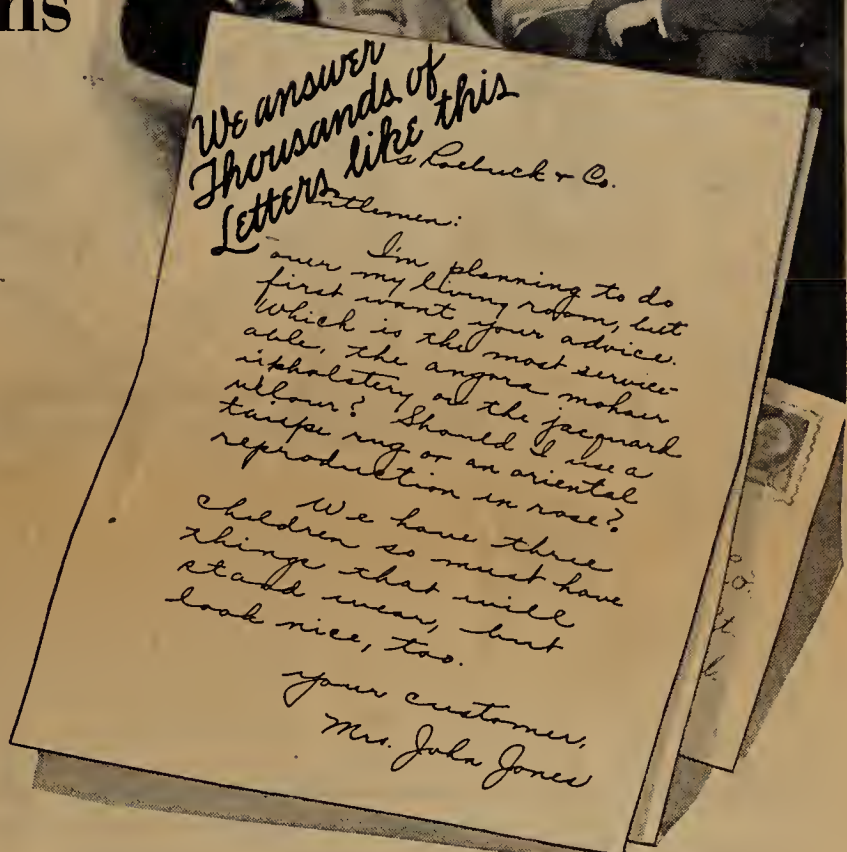 ns
We answer
Thousands of
Letters like this
s Roebuck & Co.
ntlemen:
I'm planning to do
over my living room, but
first want your advice.
Which is the most service-
able, the angora mohair
upholstery or the jacquard
velour? Should I use a
taupe rug or an oriental
reproduction in rose?
We have three
children so must have
things that will
stand wear, but
look nice, too.
your customer,
Mrs. John Jones
Co.
St.
l.